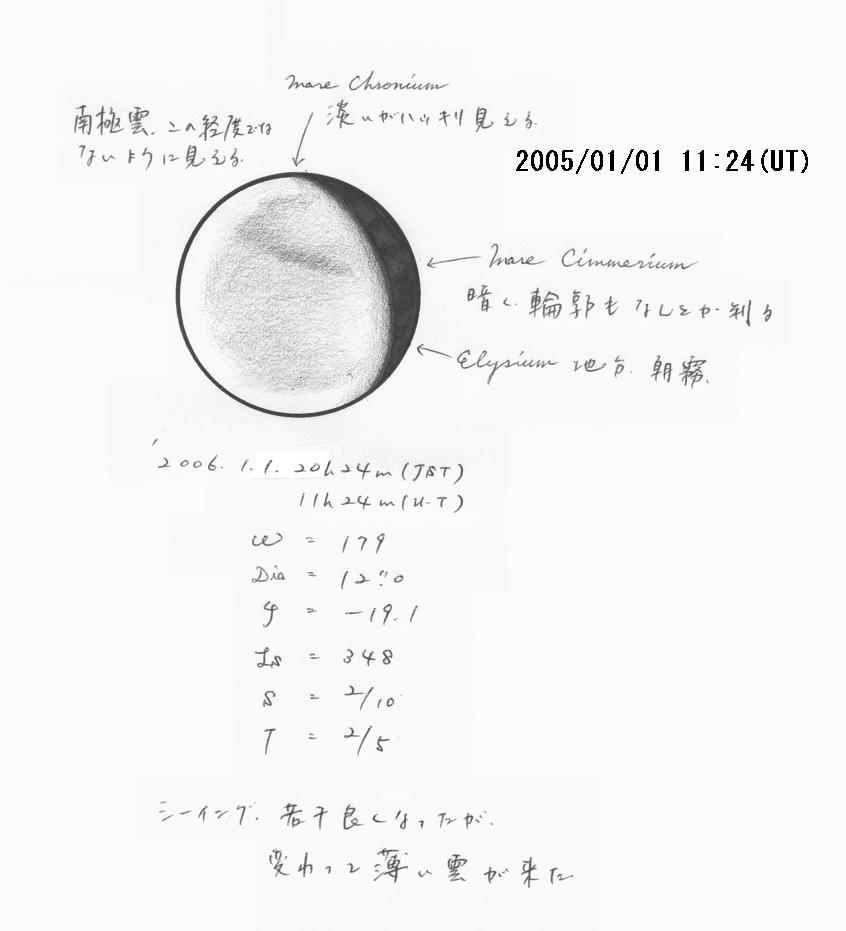 Mare Chronium
淡いがハッキリ見える.
南極雲. この経度では
ないように見える.
2005/01/01 11:24(UT)
Mare Cimmerium
暗く、輪郭もなんとか判る
Elysium 地方. 朝霧.
'2006. 1. 1. 20h24m(JST)
11h24m(U.T)
ω = 179
Dia = 12".0
φ = -19.1
Ls = 348
S = 2/10
T = 2/5
シーイング. 若干良くなったが.
変わって薄い雲が来た